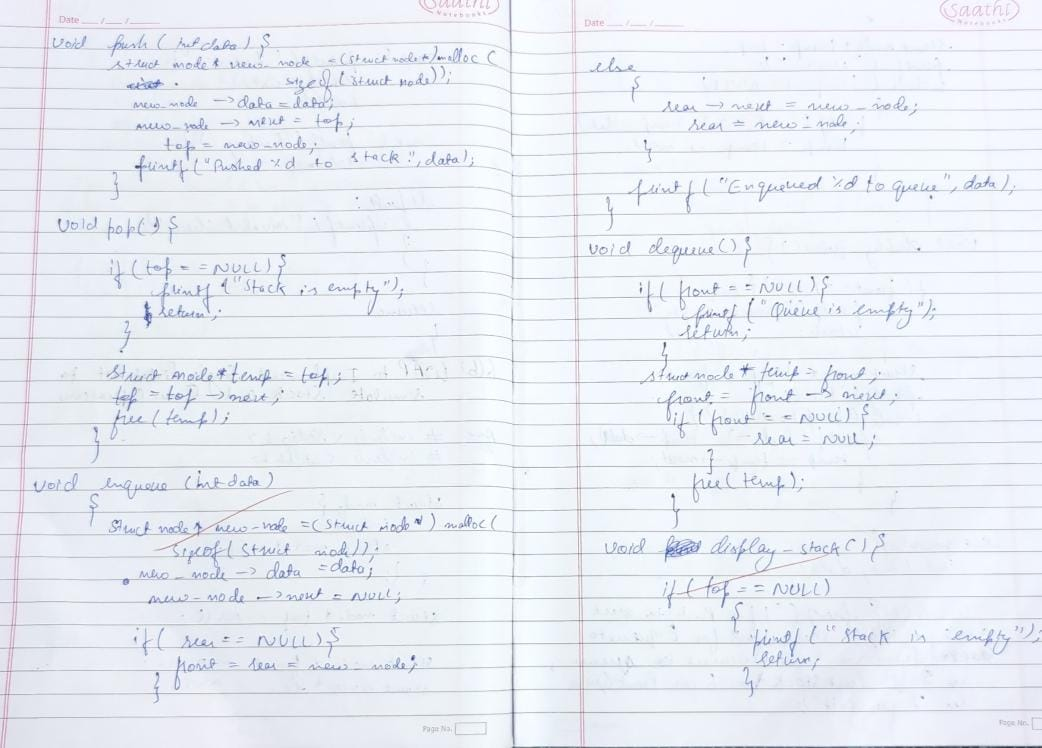 Saathi
Notebooks
Date __/__/__
void push(int data) {
struct node* new_node = (struct node*) malloc(
sizeof(struct node));
new_node -> data = data;
new_node -> next = top;
top = new_node;
printf("Pushed %d to stack:", data);
}
void pop() {
if (top == NULL) {
printf("Stack is empty");
return;
}
struct node* temp = top;
top = top -> next;
free(temp);
}
void enqueue (int data)
{
struct node* new-node = (struct node*) malloc(
sizeof(struct node));
new_node -> data = data;
new-node -> next = NULL;
if( rear == NULL) {
front = rear = new-node;
}
Page No.
Saathi
Notebooks
Date __/__/__
else
{
rear -> next = new_node;
rear = new-node;
}
printf("Enqueued %d to queue", data);
}
void dequeue() {
if( front == NULL) {
printf("Queue is empty");
return;
}
struct node* temp = front;
front = front -> next;
if(front == NULL) {
rear = NULL;
}
free(temp);
}
void display-stack() {
if (top == NULL)
{
printf("Stack is empty");
return;
}
Page No.